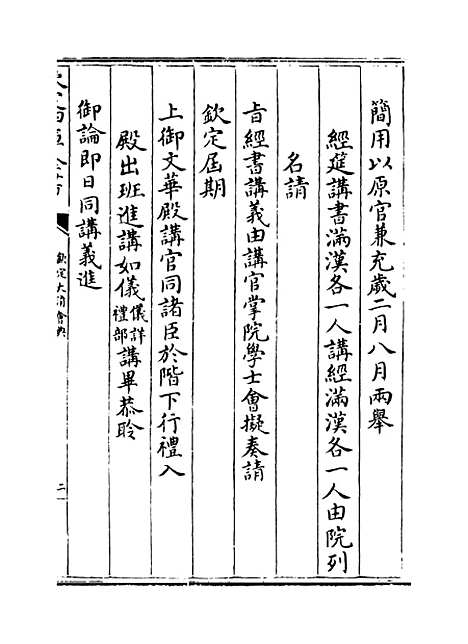 簡用以原官兼充歲二月八月兩舉
經筵講書滿漢各一人講經滿漢各一人由院列
名請
旨經書講義由講官掌院學士會擬奏請
欽定屆期
上御文華殿講官同諸臣於階下行禮入
殿出班進講如儀儀詳禮部講畢恭聆
御論即日同講義進
欽定大清會典
二